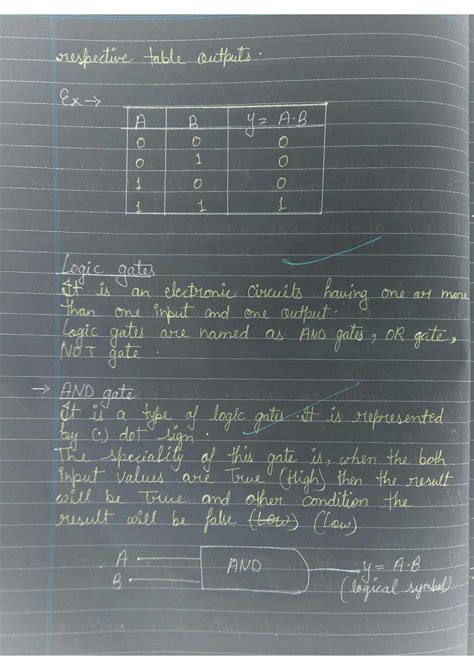 respective table outputs.
Ex →
A B y = A·B
0 0 0
0 1 0
1 0 0
1 1 1
Logic gates
It is an electronic circuits having one or more
than one input and one output.
Logic gates are named as AND gates, OR gate,
NOT gate.
→ AND gate
It is a type of logic gates. It is represented
by (·) dot sign.
The speciality of this gate is, when the both
input values are True (High) then the result
will be True and other condition the
result will be false (Low) (Low)
A
B
AND
y = A·B
(logical symbol)